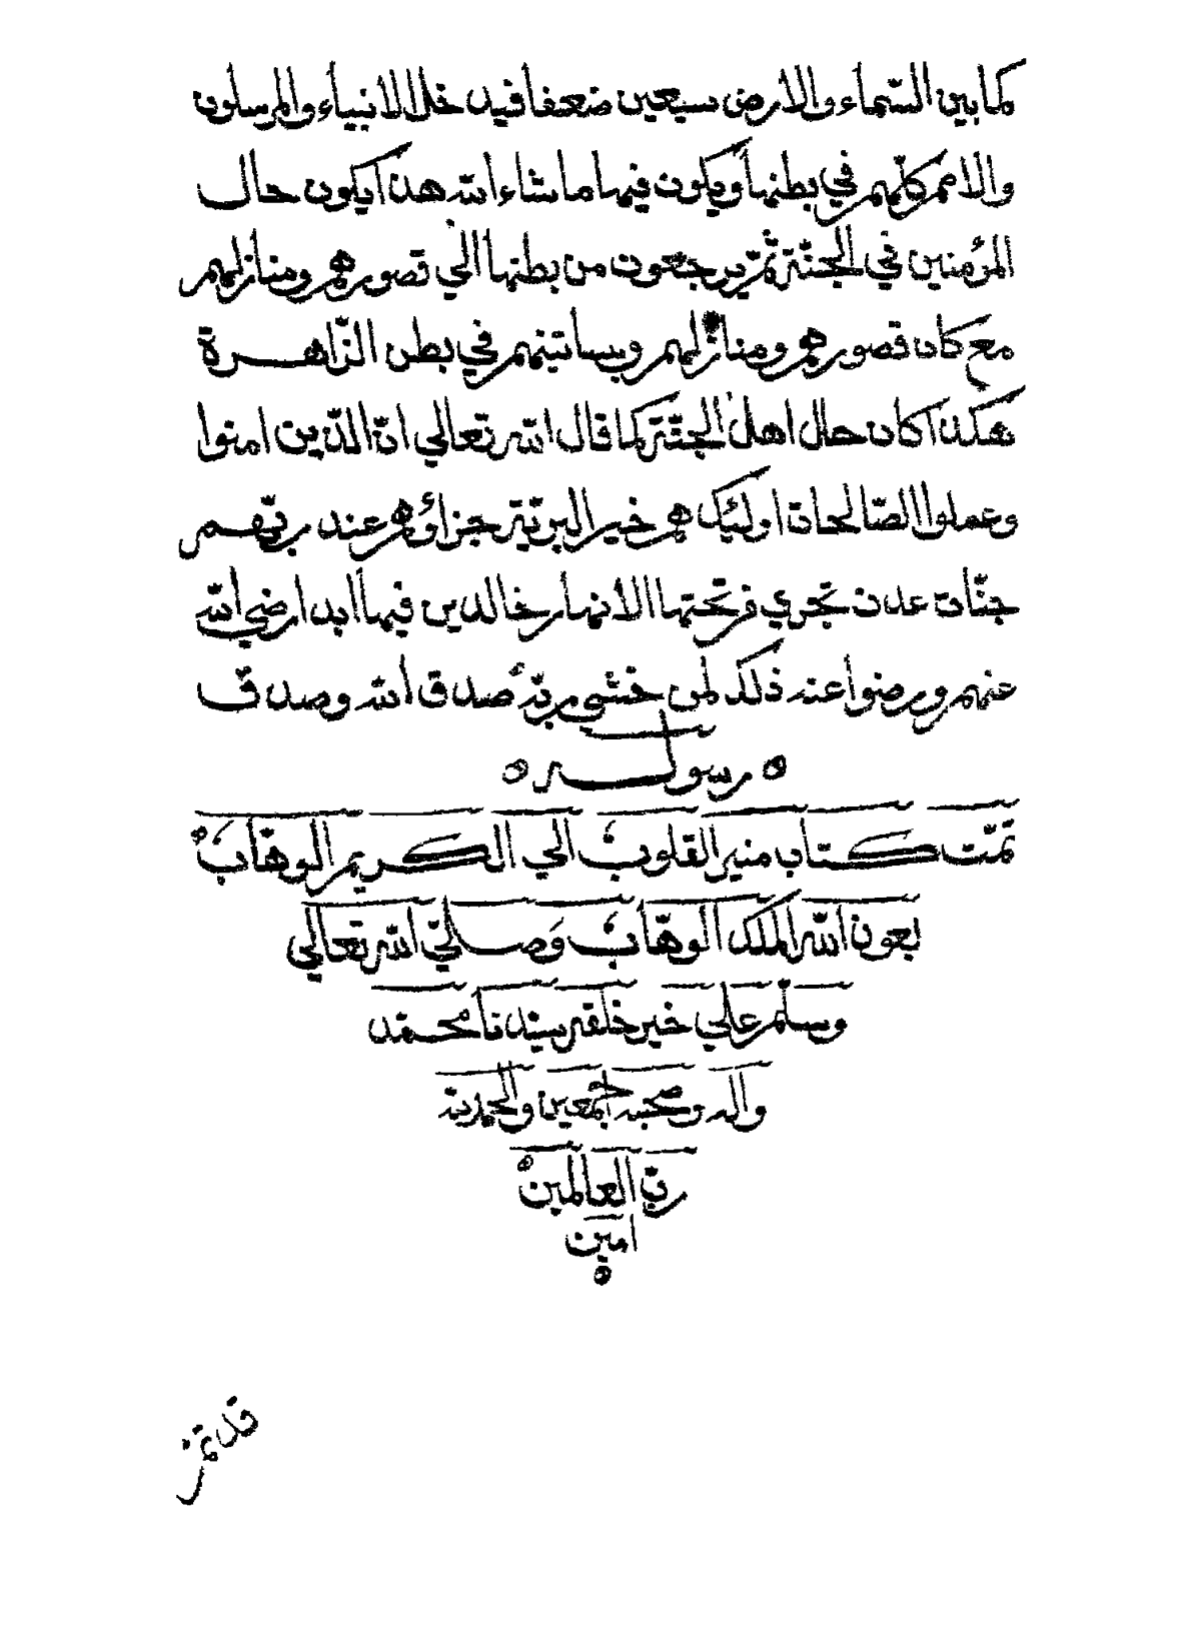 كما بين السّماء والارض سبعين ضعفا فيدخل الانبياء والمرسلون
والامم كلّهم في بطنها ويكون فيها ما شاء الله هذا يكون حال
المؤمنين في الجنّة ثمّ يرجعون من بطنها الي قصورهم ومنازلهم
مع كان قصورهم ومنازلهم وبساتينهم في بطن الزّاهرة
هكذا كان حال اهل الجنّة كما قال الله تعالي انّ الذّين امنوا
وعملوا الصّالحات اولئيك هم خير البريّة جزاؤهم عند ربّهم
جنّات عدن تجري من تحتها الانهار خالدين فيها ابدا رضي الله
عنهم ورضوا عنه ذلك لمن خشي ربّه صدق الله وصدق
رسوله
تمّت كتاب منير القلوب الي الكريم الوهّاب
بعون الله الملك الوهّاب وصلّي الله تعالي
وسلّم علي خير خلقه سيّدنا محمّد
واله وصحبه اجمعين والحمد لله
ربّ العالمين
امين
قد تمّ